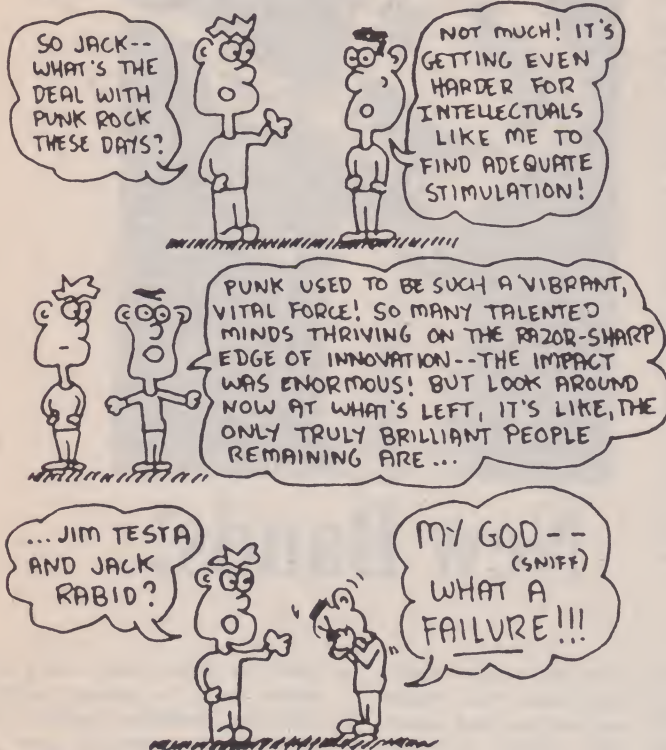 SO JACK--
WHAT'S THE
DEAL WITH
PUNK ROCK
THESE DAYS?
NOT MUCH! IT'S
GETTING EVEN
HARDER FOR
INTELLECTUALS
LIKE ME TO
FIND ADEQUATE
STIMULATION!
PUNK USED TO BE SUCH A VIBRANT,
VITAL FORCE! SO MANY TALENTED
MINDS THRIVING ON THE RAZOR-SHARP
EDGE OF INNOVATION--THE IMPACT
WAS ENORMOUS! BUT LOOK AROUND
NOW AT WHAT'S LEFT, IT'S LIKE, THE
ONLY TRULY BRILLIANT PEOPLE
REMAINING ARE...
...JIM TESTA
AND JACK
RABID?
MY GOD--
(SNIFF)
WHAT A
FAILURE!!!